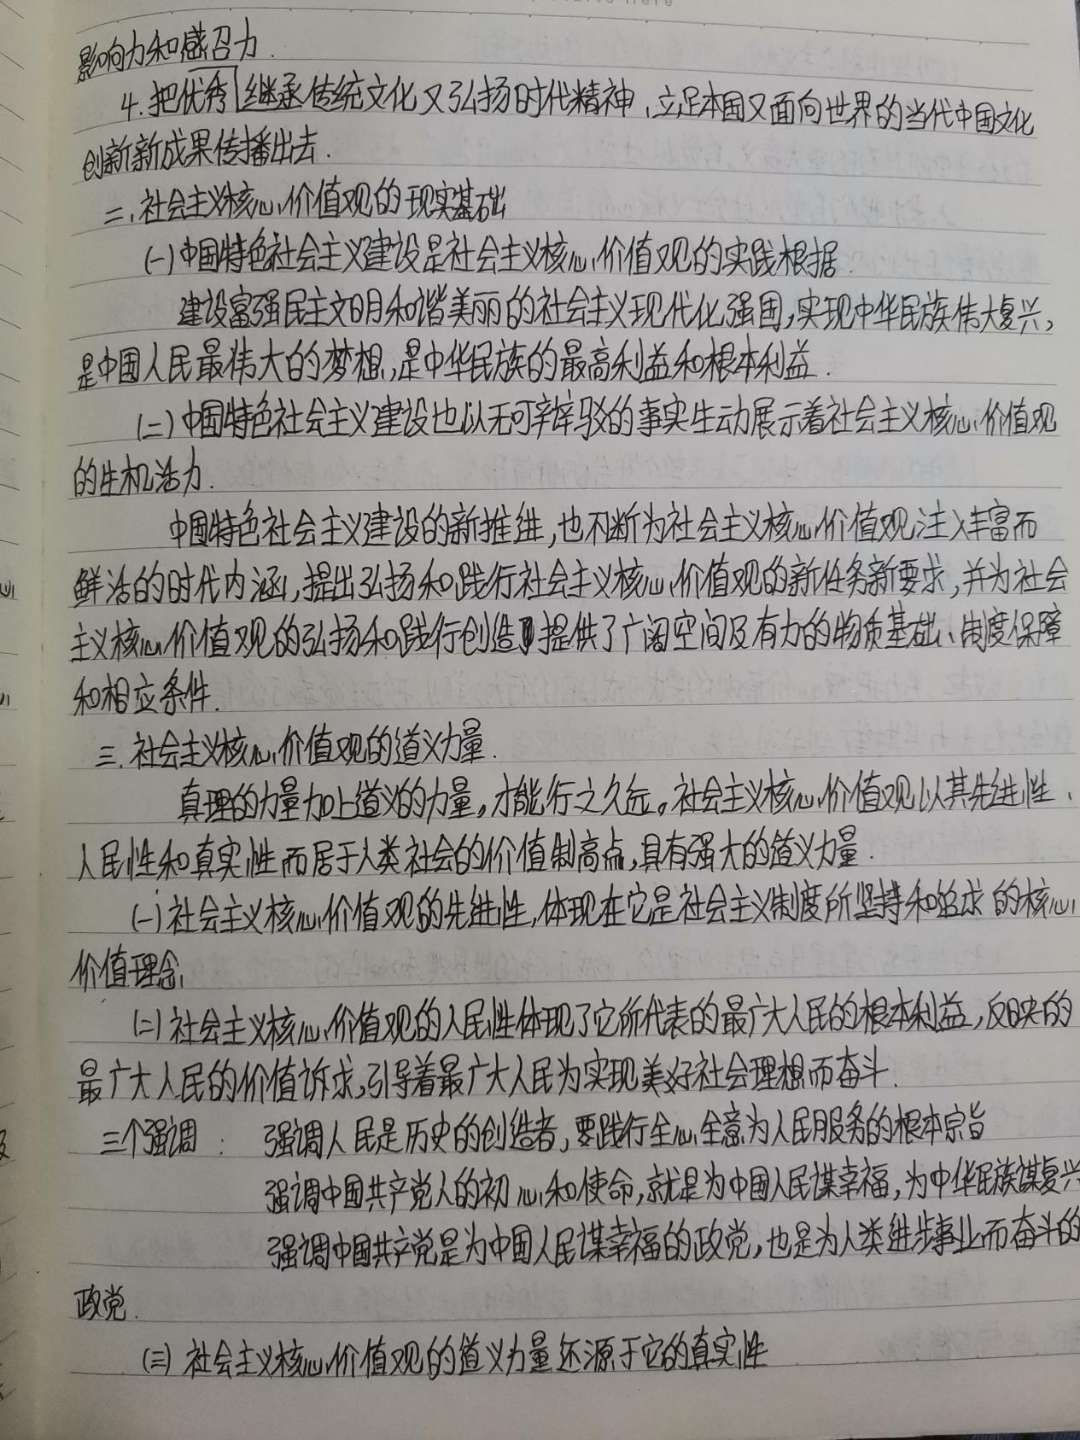 影响力和感召力.
4.把优秀继承传统文化又弘扬时代精神,立足本国又面向世界的当代中国文化
创新新成果传播出去.
二,社会主义核心价值观的现实基础
(一)中国特色社会主义建设是社会主义核心价值观的实践根据.
建设富强民主文明和谐美丽的社会主义现代化强国,实现中华民族伟大复兴,
是中国人民最伟大的梦想,是中华民族的最高利益和根本利益.
(二)中国特色社会主义建设也以无可辩驳的事实生动展示着社会主义核心价值观
的生机活力.
中国特色社会主义建设的新推进,也不断为社会主义核心价值观注入丰富而
鲜活的时代内涵,提出弘扬和践行社会主义核心价值观的新任务新要求,并为社会
主义核心价值观的弘扬和践行创造提供了广阔空间及有力的物质基础、制度保障
和相应条件.
三.社会主义核心价值观的道义力量.
真理的力量加上道义的力量,才能行之久远。社会主义核心价值观以其先进性、
人民性和真实性而居于人类社会的价值制高点,具有强大的道义力量.
(一)社会主义核心价值观的先进性,体现在它是社会主义制度所坚持和追求的核心
价值理念
(二)社会主义核心价值观的人民性体现了它所代表的最广大人民的根本利益,反映的
最广大人民的价值诉求,引导着最广大人民为实现美好社会理想而奋斗.
三个强调: 强调人民是历史的创造者,要践行全心全意为人民服务的根本宗旨
强调中国共产党人的初心和使命,就是为中国人民谋幸福,为中华民族谋复兴
强调中国共产党是为中国人民谋幸福的政党,也是为人类进步事业而奋斗的
政党.
(三)社会主义核心价值观的道义力量还源于它的真实性